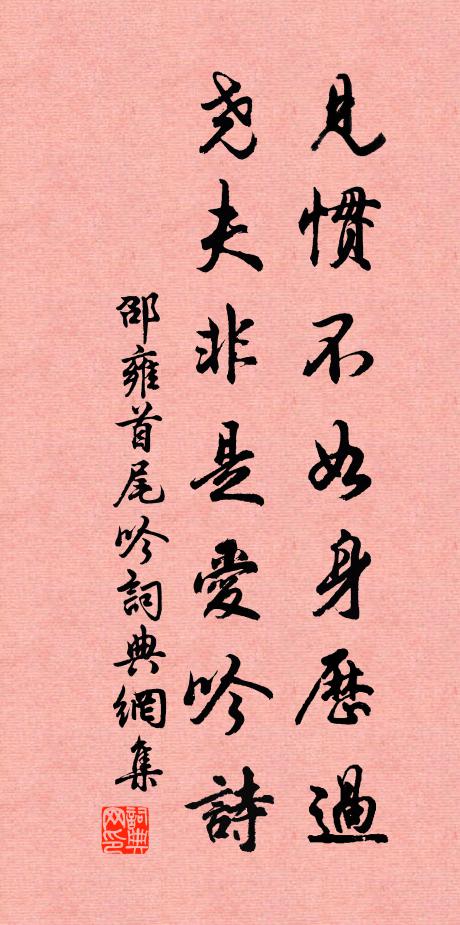 見慣不如身歷過
堯夫非是愛吟詩
邵雍首尾吟詞典網集
詞典网印